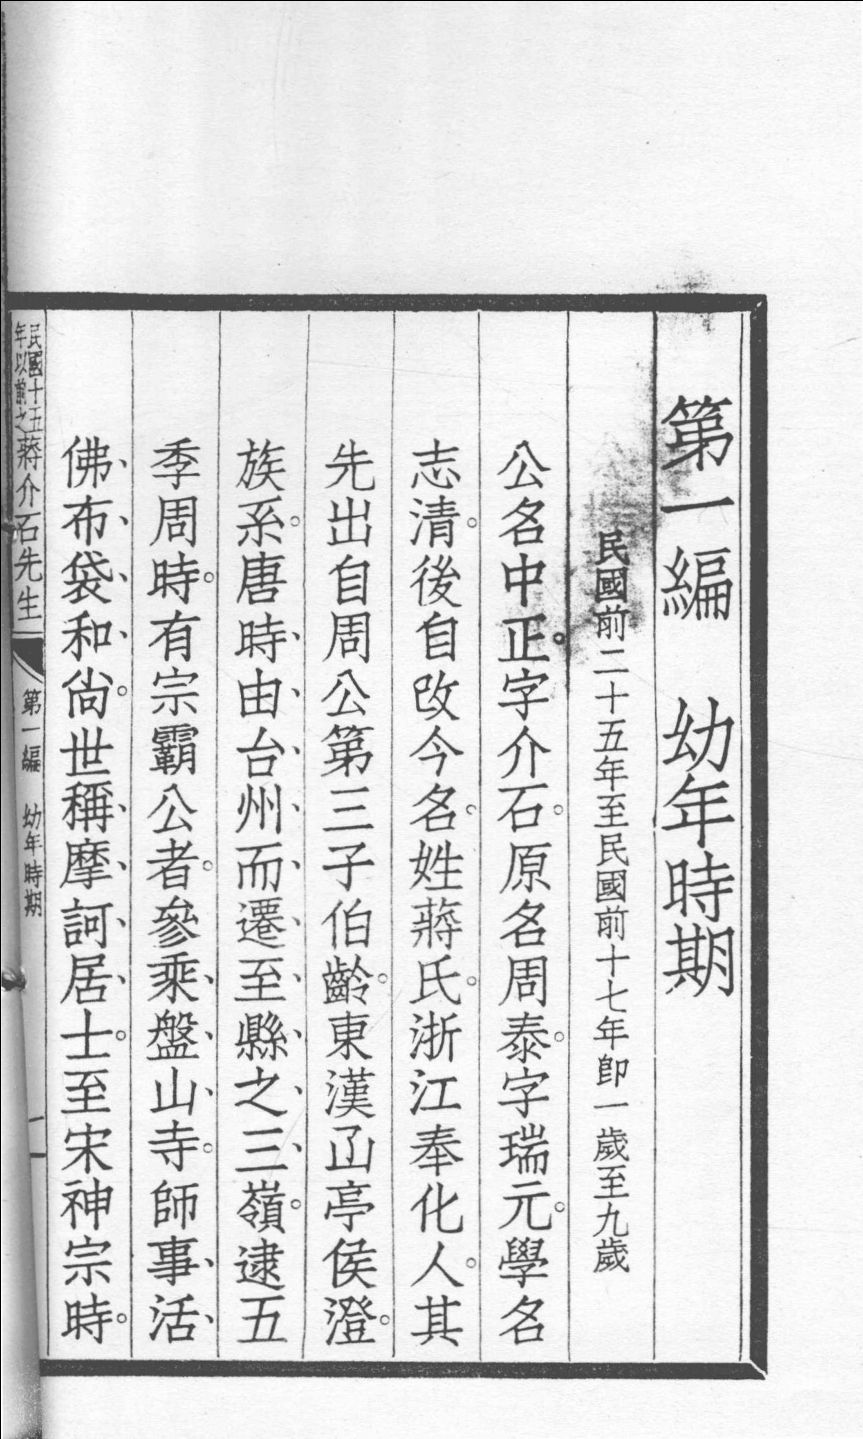 第一編　幼年時期
民國前二十五年至民國前十七年卽一歲至九歲
公名中正。字介石。原名周泰。字瑞元。學名
志清。後自改今名。姓蔣氏。浙江奉化人。其
先出自周公第三子伯齡。東漢㐭亭侯澄。
族系。唐時、由台、州、而遷、至、縣、之、三、嶺。逮五
季周時。有宗霸公者。參乘、盤、山、寺。師事、活、
佛、布、袋、和、尙。世稱、摩、訶、居、士。至宋神宗時。
民國十五年以前之蔣介石先生　第一編　幼年時期　一